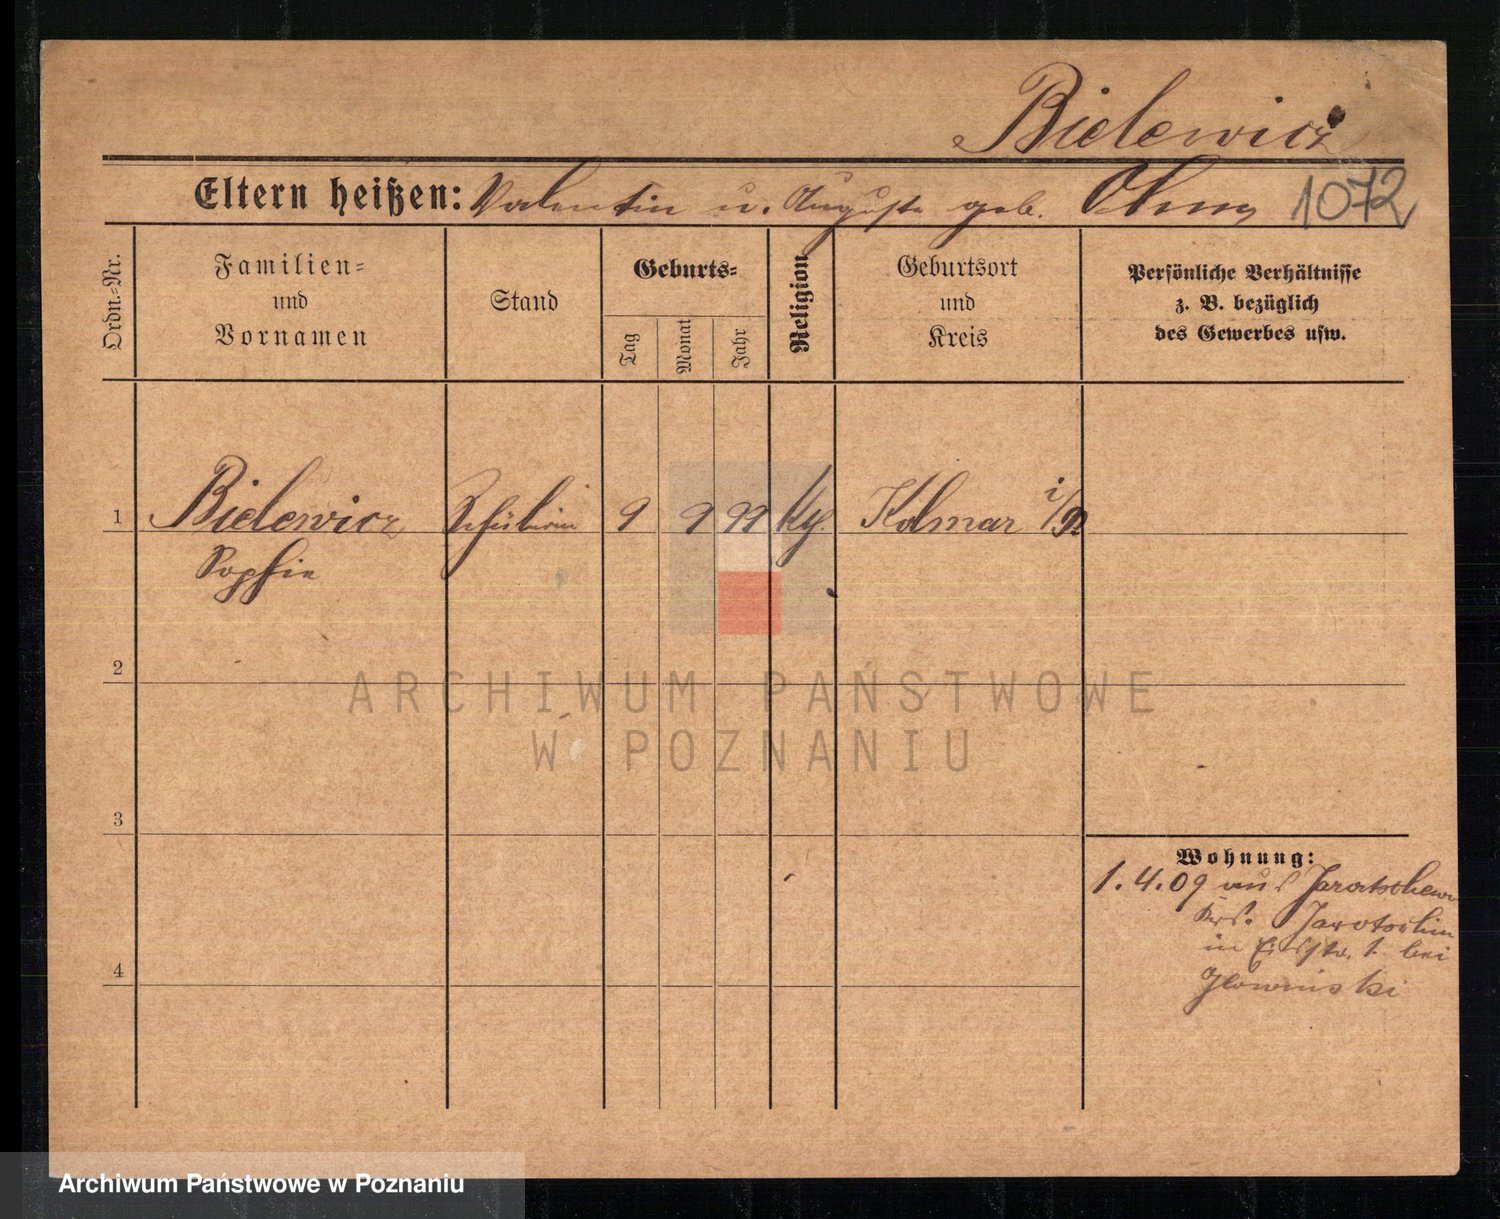 Bielewicz
Eltern heißen: Valentin u. Auguste geb. 1072
Ordn.-Nr.
Familien-
und
Vornamen
Stand
Geburts-
Tag
Monat
Jahr
Religion
Geburtsort
und
Kreis
Persönliche Verhältnisse
z. B. bezüglich
des Gewerbes usw.
1 Bielewicz Schülerin 9 9 99 Kolmar i/P
Sophie
2
ARCHIWUM PAŃSTWOWE
W POZNANIU
3
Wohnung:
1.4.09 aus Jaratschewo
Krs. Jarotschin
in 1 bei
Glowinski
4
Archiwum Państwowe w Poznaniu